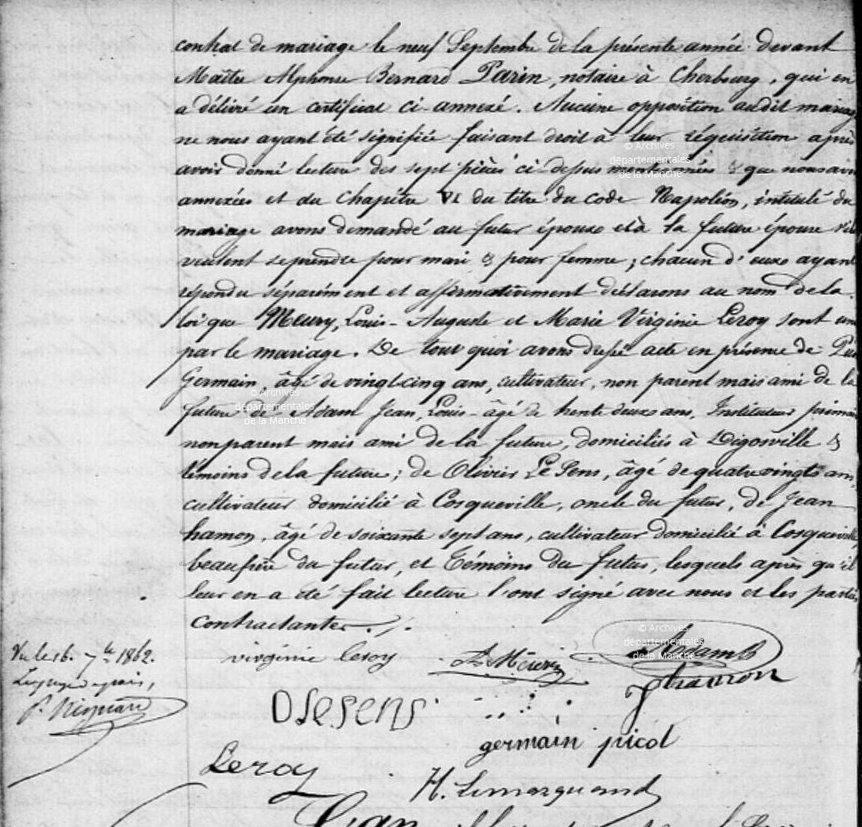 contrat de mariage le neuf Septembre de la présente année devant
Maître Alphonse Bernard Parin, notaire à Cherbourg, qui en
a délivré un certificat ci-annexé. Aucune opposition audit mariage
ne nous ayant été signifiée faisant droit à leur réquisition après
avoir donné lecture des sept pièces ci-dessus mentionnées & que nous avons
annexées et du Chapitre VI du titre du Code Napoléon, intitulé du
mariage avons demandé au futur épouxe et à la future épouse s'ils
veulent se prendre pour mari & pour femme; chacun d'euxe ayant
répondu séparément et affirmativement déclarons au nom de la
loi que Meury, Louis-Auguste et Marie Virginie Leroy sont unis
par le mariage. De tout quoi avons dressé acte en présence de
Germain, âgé de vingt cinq ans, cultivateur, non parent mais ami de la
future de Adam Jean, Louis âgé de trente deuxe ans, Instituteur primaire
non parent mais ami de la future, domiciliés à Digosville &
témoins de la future; de Olivier Le Sens, âgé de quatre vingts ans
cultivateur domicilié à Cosqueville, oncle du futur, de Jean
hamon, âgé de soixante sept ans, cultivateur domicilié à Cosqueville
beaufrère du futur, et témoins du futur, lesquels après qu'il
leur en a été fait lecture l'ont signé avec nous et les parties
contractantes ./.
Vu le 16 7bre 1862.
virginie leroy
Meury
Adam
jhamon
O le sens
germain picot
Leroy
H. Lemarquand
© Archives
départementales
de la Manche
© Archives
départementales
de la Manche
© Archives
départementales
de la Manche